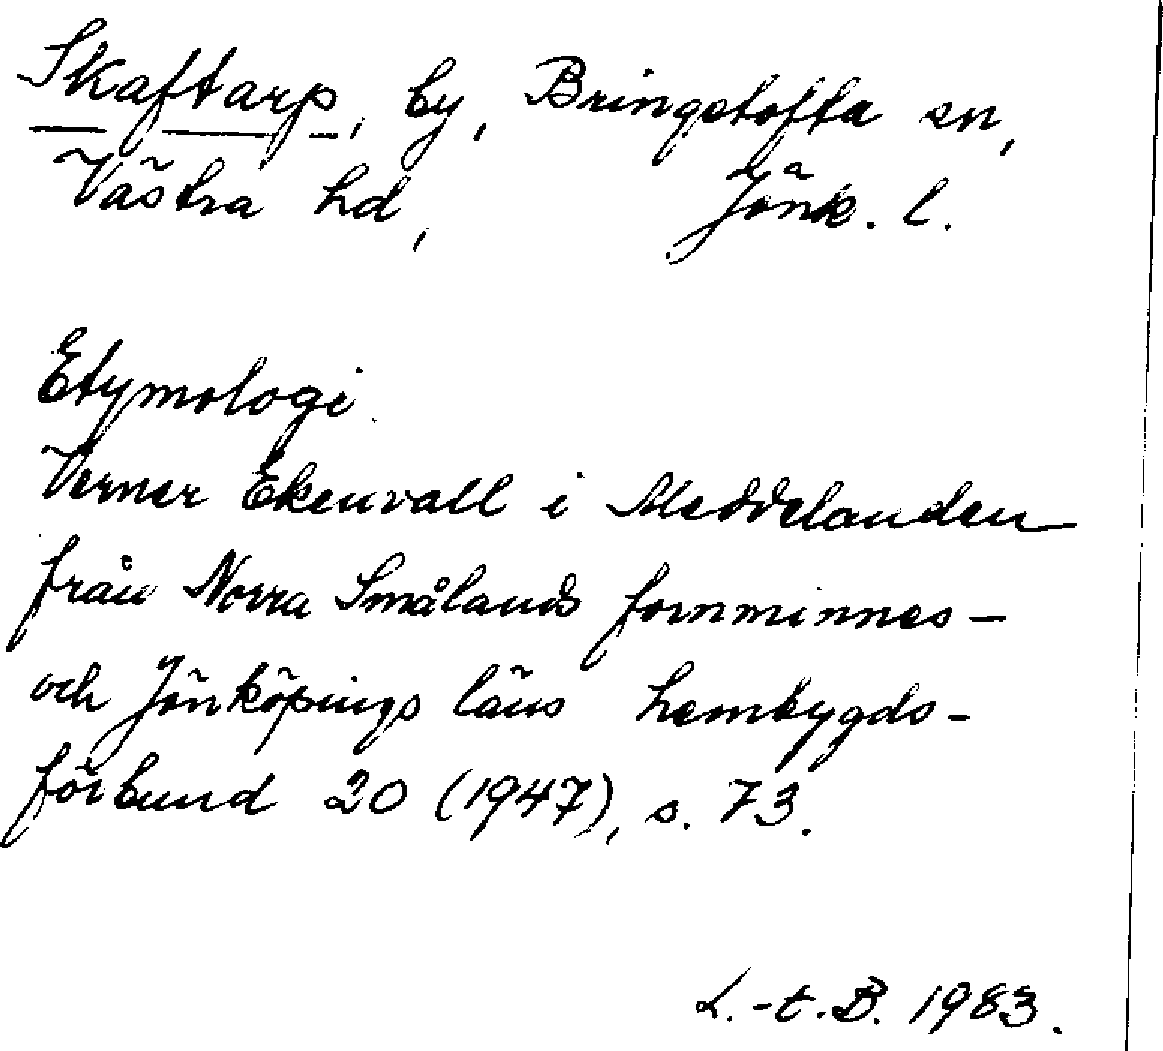 Skaftarp, by, Bringetofta sn,
Västra hd, Jönk. l.
Etymologi.
Verner Ekenvall i Meddelanden
från Norra Smålands fornminnes-
och Jönköpings läns hembygds-
förbund 20 (1947), s. 73.
L.-t.B. 1983.